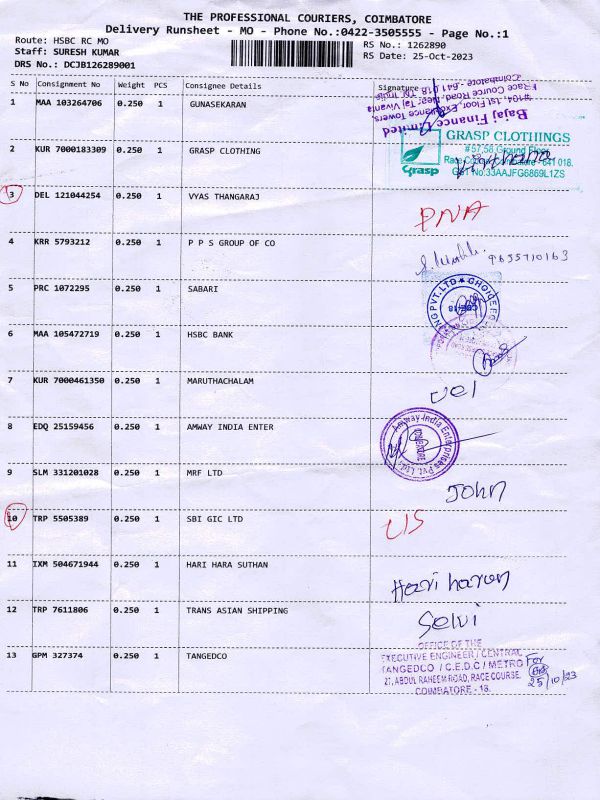 THE PROFESSIONAL COURIERS, COIMBATORE
Delivery Runsheet - MO - Phone No.:0422-3505555 - Page No.:1
Route: HSBC RC MO
Staff: SURESH KUMAR
DRS No.: DCJB126289001
RS No.: 1262890
RS Date: 25-Oct-2023
S No Consignment No Weight PCS Consignee Details Signature
Bajaj Finance Limited
#104, 1st Floor, Excellance Towers,
Race Cource Road, Near, Taj Vivanta
Coimbatore - 641 018.
1 MAA 103264706 0.250 1 GUNASEKARAN
2 KUR 7000183309 0.250 1 GRASP CLOTHING
Grasp
GRASP CLOTHINGS
#57,58 Ground Floor
Race Coimbatore - 641 018.
GST No.33AAJFG6869L1ZS
3 DEL 121044254 0.250 1 VYAS THANGARAJ PNA
4 KRR 5793212 0.250 1 P P S GROUP OF CO 9655710163
5 PRC 1072295 0.250 1 SABARI
PVT.LTD ★ CHOICE
CBE-18
6 MAA 105472719 0.250 1 HSBC BANK
7 KUR 7000461350 0.250 1 MARUTHACHALAM Vel
8 EDQ 25159456 0.250 1 AMWAY INDIA ENTER
Amway India Enterprises Pvt. Ltd.
9 SLM 331201028 0.250 1 MRF LTD John
10 TRP 5505389 0.250 1 SBI GIC LTD
11 IXM 504671944 0.250 1 HARI HARA SUTHAN Hari haran
12 TRP 7611806 0.250 1 TRANS ASIAN SHIPPING Selvi
13 GPM 327374 0.250 1 TANGEDCO
OFFICE OF THE
EXECUTIVE ENGINEER / CENTRAL
TANGEDCO / C.E.D.C / METRO
21, ABDUL RAHEEM ROAD, RACE COURSE,
COIMBATORE - 18.
For
25/10/23